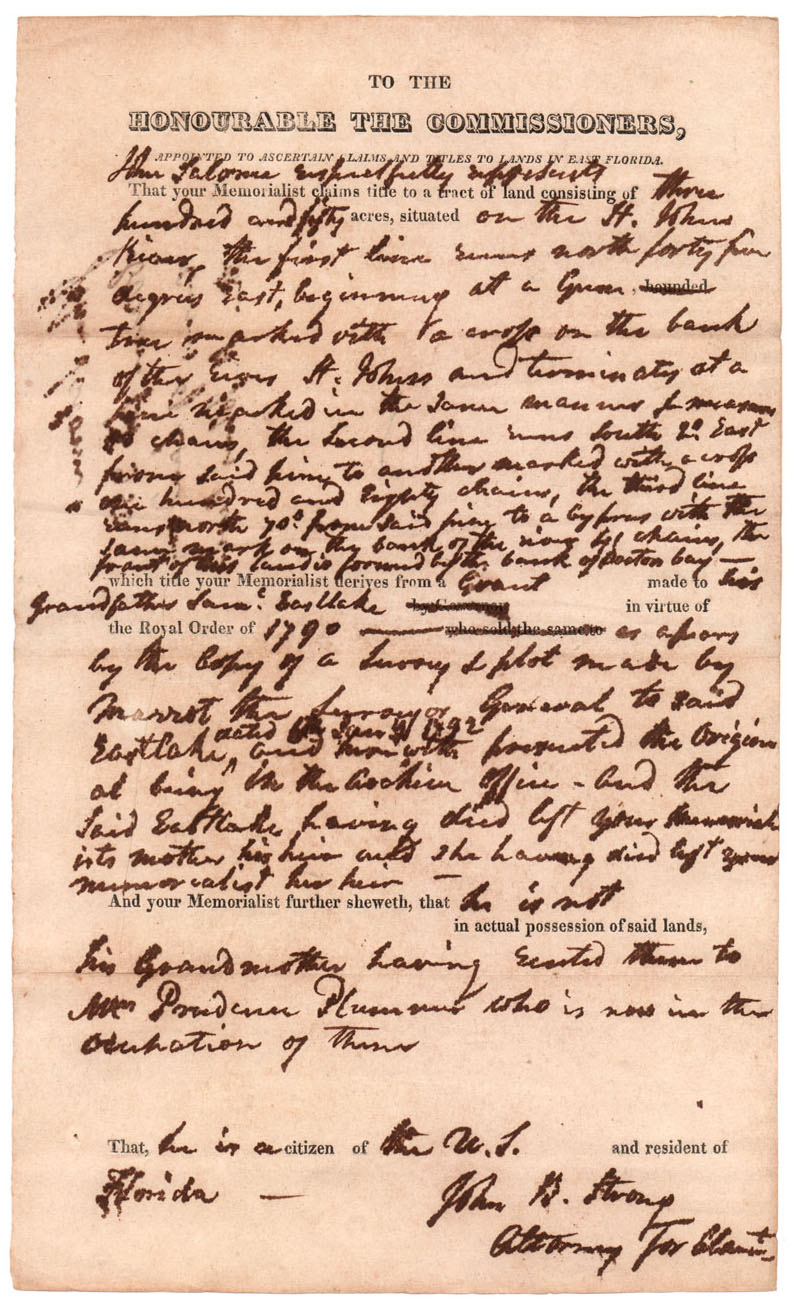 TO THE
HONOURABLE THE COMMISSIONERS,
APPOINTED TO ASCERTAIN CLAIMS AND TITLES TO LANDS IN EAST FLORIDA.
John Salome respectfully represents
That your Memorialist claims title to a tract of land consisting of three
hundred and fifty acres, situated on the St. Johns
River, the first line runs north forty five
degrees East, beginning at a Gum, bounded
tree marked with a cross on the bank
of the river St. Johns and terminates at a
pine marked in the same manner & measures
80 chains, the Second line runs South 20 East
from said pine to another marked with a cross
one hundred and Eighty chains, the third line
runs north 70º from said pine to a Cyprus with the
same mark on the bank of the river chains, the
front of this land is formed by the bank of Docton bay —
which title your Memorialist derives from a Grant made to his
Grandfather Saml. Eastlake by Governor in virtue of
the Royal Order of 1790 who sold the same to as apears
by the Copy of a Survey & plot made by
Marrot the Surveyor General to said
dated Jany 1792
Eastlake, and herewith presented the Origin
al being in the Archive Office - And the
Said Eastlake having died left your
mother his heir and she having died left your
memorialist her heir —
And your Memorialist further sheweth, that he is not
in actual possession of said lands,
his Grandmother having rented them to
Mrs Prudence Plummer who is now in the
ocupation of them
That, he is a citizen of the U. S. and resident of
Florida —
John B. Strong
Attorney for Claimt.